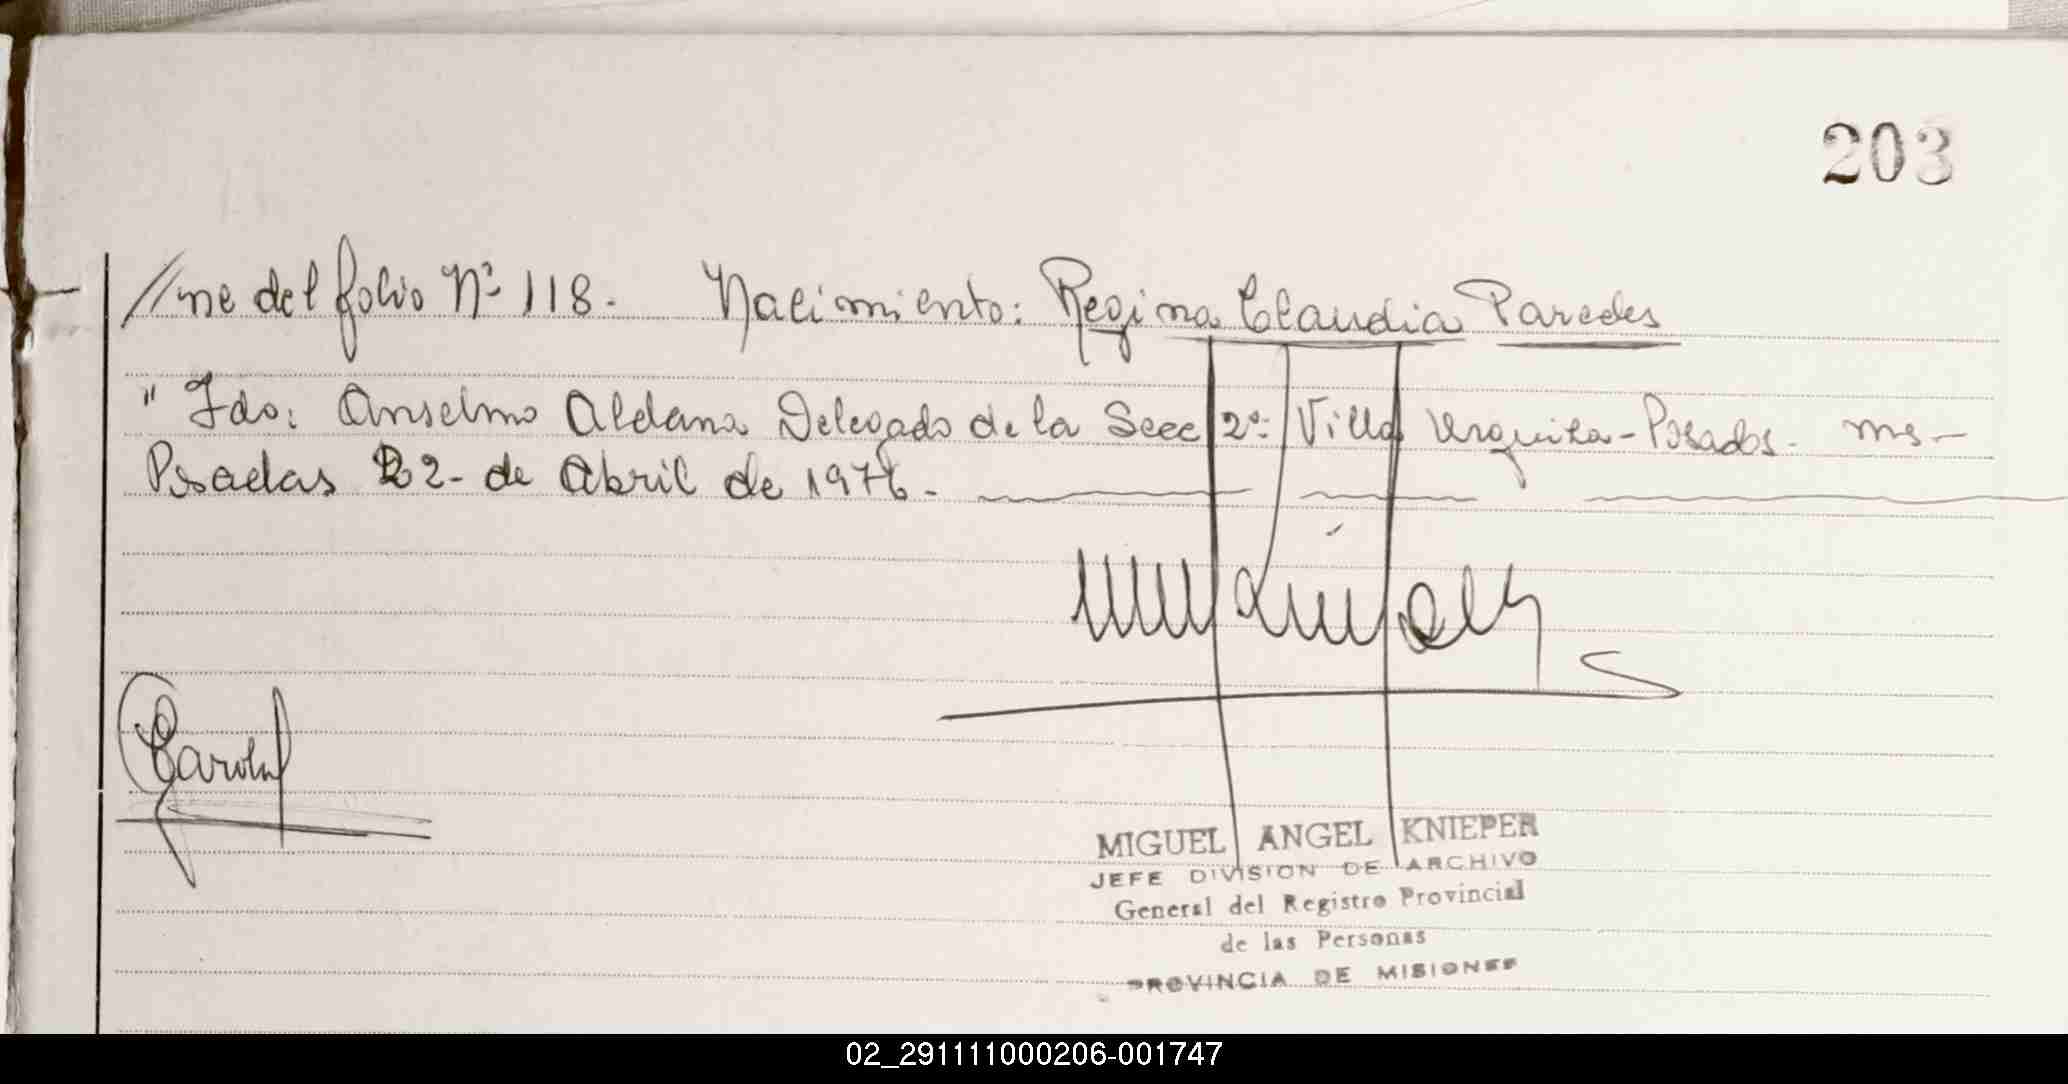 203
//ne del folio Nº 118. Nacimiento: Regina Claudia Paredes
" Fdo: Anselmo Aldana Delegado de la Secc 2ª: Villa Urquiza - Posadas. ms-
Posadas 22 - de Abril de 1976. -
MIGUEL ANGEL KNIEPER
JEFE DIVISION DE ARCHIVO
General del Registro Provincial
de las Personas
PROVINCIA DE MISIONES
02_291111000206-001747